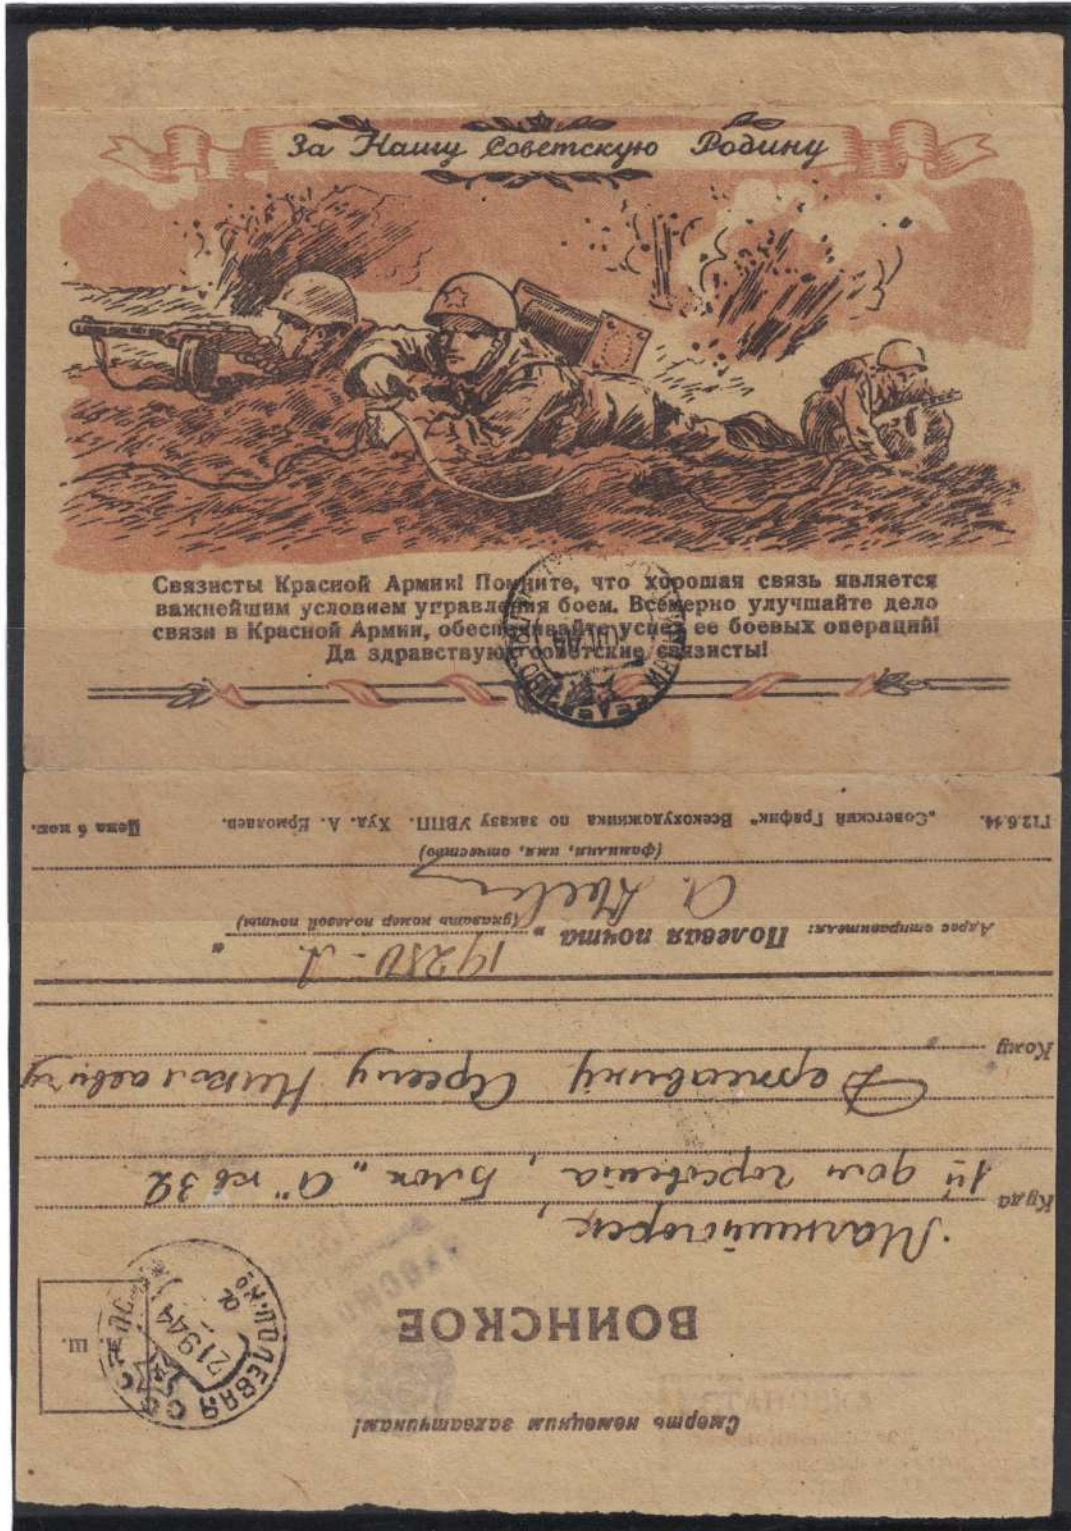 За Нашу Советскую Родину
Связисты Красной Армии! Помните, что хорошая связь является
важнейшим условием управления боем. Всемерно улучшайте дело
связи в Красной Армии, обеспечивайте успех ее боевых операций!
Да здравствуют советские связисты!
Смерть немецким захватчикам!
ВОИНСКОЕ
ПОЛЕВАЯ
2 1 9 44
Куда
1й дом горсовета, Блок „А" кв 32
Кому
Николаевичу
Адрес отправителя: Полевая почта „ 19280 - Л "
(указать номер полевой почты)
А.
(фамилия, имя, отчество)
Г12.6.44. „Советский График" Всекохудожника по заказу УВПП. Худ. А. Ермолаев. Цена 6 коп.